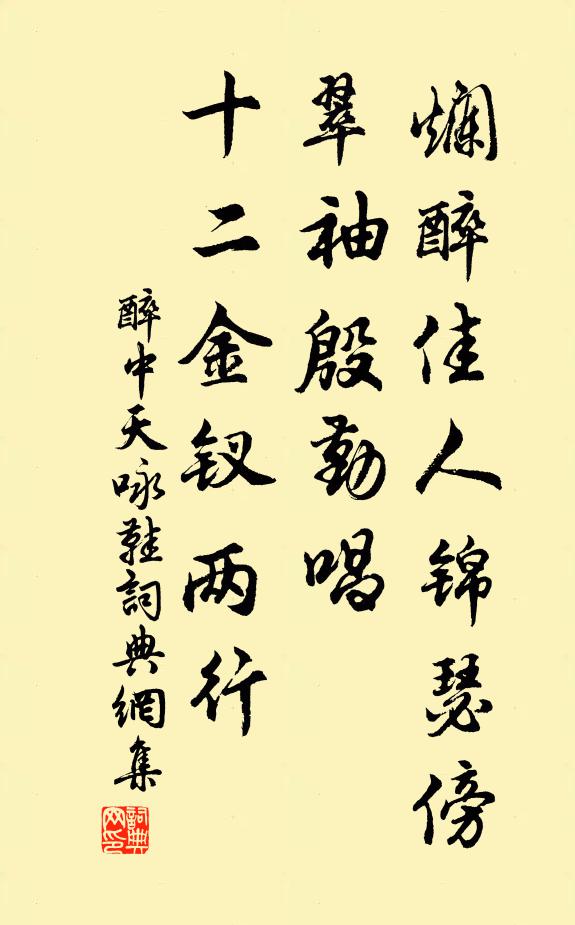 爛醉佳人锦瑟傍
翠袖殷勤唱
十二金钗两行
醉中天咏鞋詞典網集
詞典网印